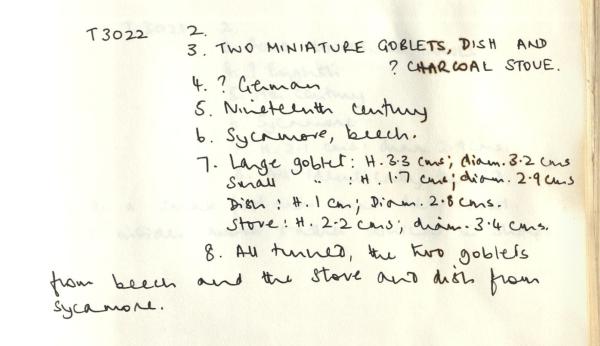 T3022 2.
3. TWO MINIATURE GOBLETS, DISH AND
? CHARCOAL STOVE.
4. ? German
5. Nineteenth century
6. Sycamore, beech.
7. Large goblet: H. 3.3 cms; diam. 3.2 cms
Small " : H. 1.7 cms; diam. 2.9 cms
Dish: H. 1 cm; Diam. 2.8 cms.
Stove: H. 2.2 cms; diam. 3.4 cms.
8. All turned, the two goblets
from beech and the stove and dish from
sycamore.